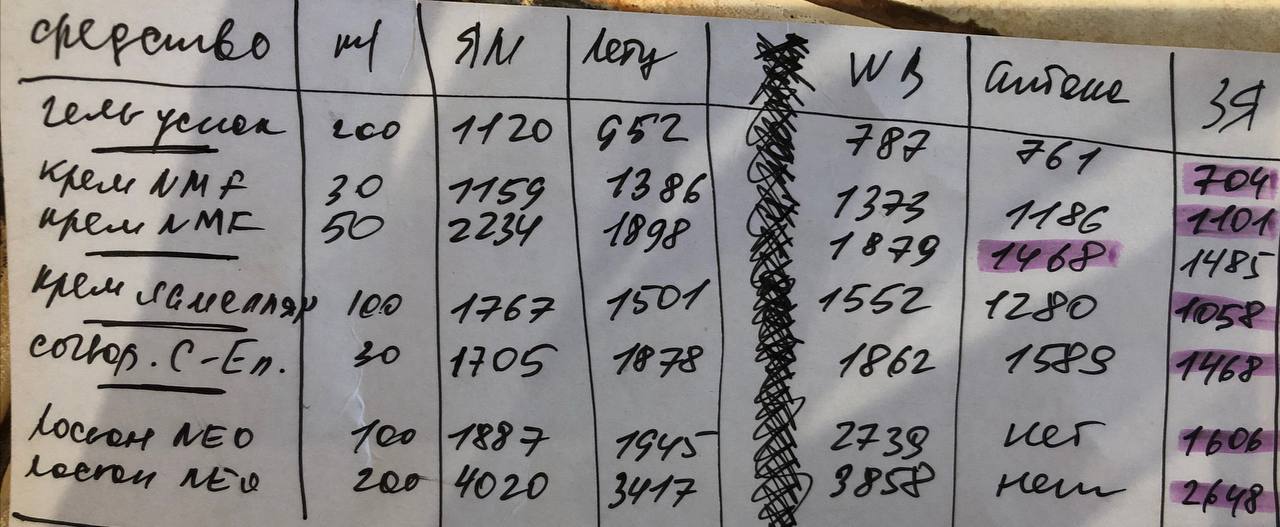 средство ml ЯМ Лету WB аптека ЗЯ
гель успок 200 1120 952 787 761 704
крем NMF 30 1159 1386 1373 1186 1101
крем NMF 50 2234 1898 1879 1468 1485
крем ламелляр 100 1767 1501 1552 1280 1058
сывор. C-Еп. 30 1705 1878 1862 1589 1468
лосьон NEO 100 1887 1945 2739 нет 1606
лосьон NEO 200 4020 3417 3858 нет 2648